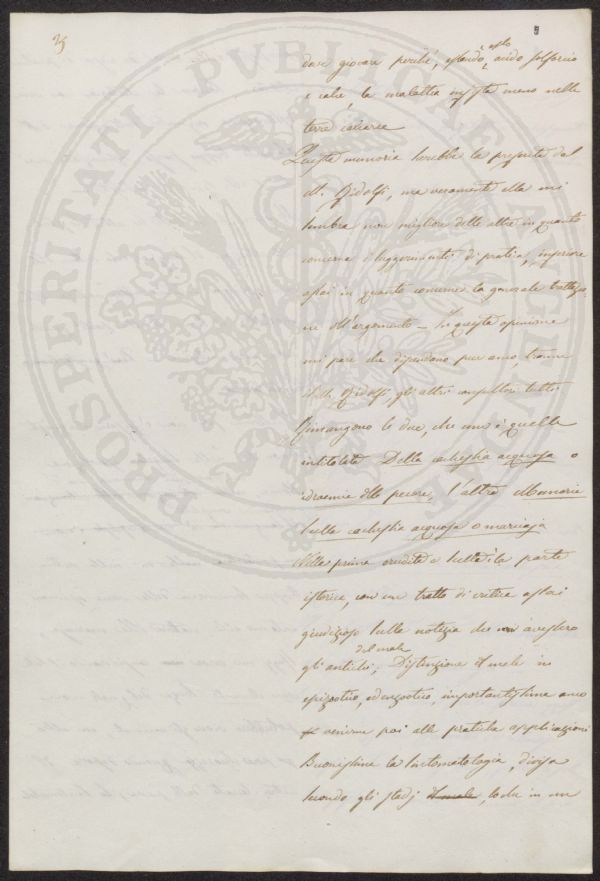 25
dare giovare perché, essendo esso acido solforico
e calce, la malattia insiste meno nelle
terre calcaree
Questa memoria sarebbe la preferita dal
M. Ridolfi, ma veramente ella mi
sembra non migliore delle altre in quanto
concerne i suggerimenti di pratica, inferiore
assai in quanto concerne la generale trattazio
ne dell'argomento — In questa opinione
mi pare che dipendano pur anco, tranne
il M. Ridolfi, gli altri consultori tutti
Rimangono le due, che una è quella
intitolata Della cachessia acquosa o
idroemia delle pecore, l'altra Memoria
sulla cachessia acquosa o marciaja
Nella prima erudita e bella è la parte
istorica, con un tratto di critica assai
giudizioso sulla notizia che ne avessero
gli antichi; Distinzione del male in
epizootico, ed enzootico, importantissima anco
venirne poi alle pratiche applicazioni
Buonissima la sintomatologia, divisa
secondo gli stadj del male, lode in un
PROSPERITATI PUBLICAE AUGENDAE